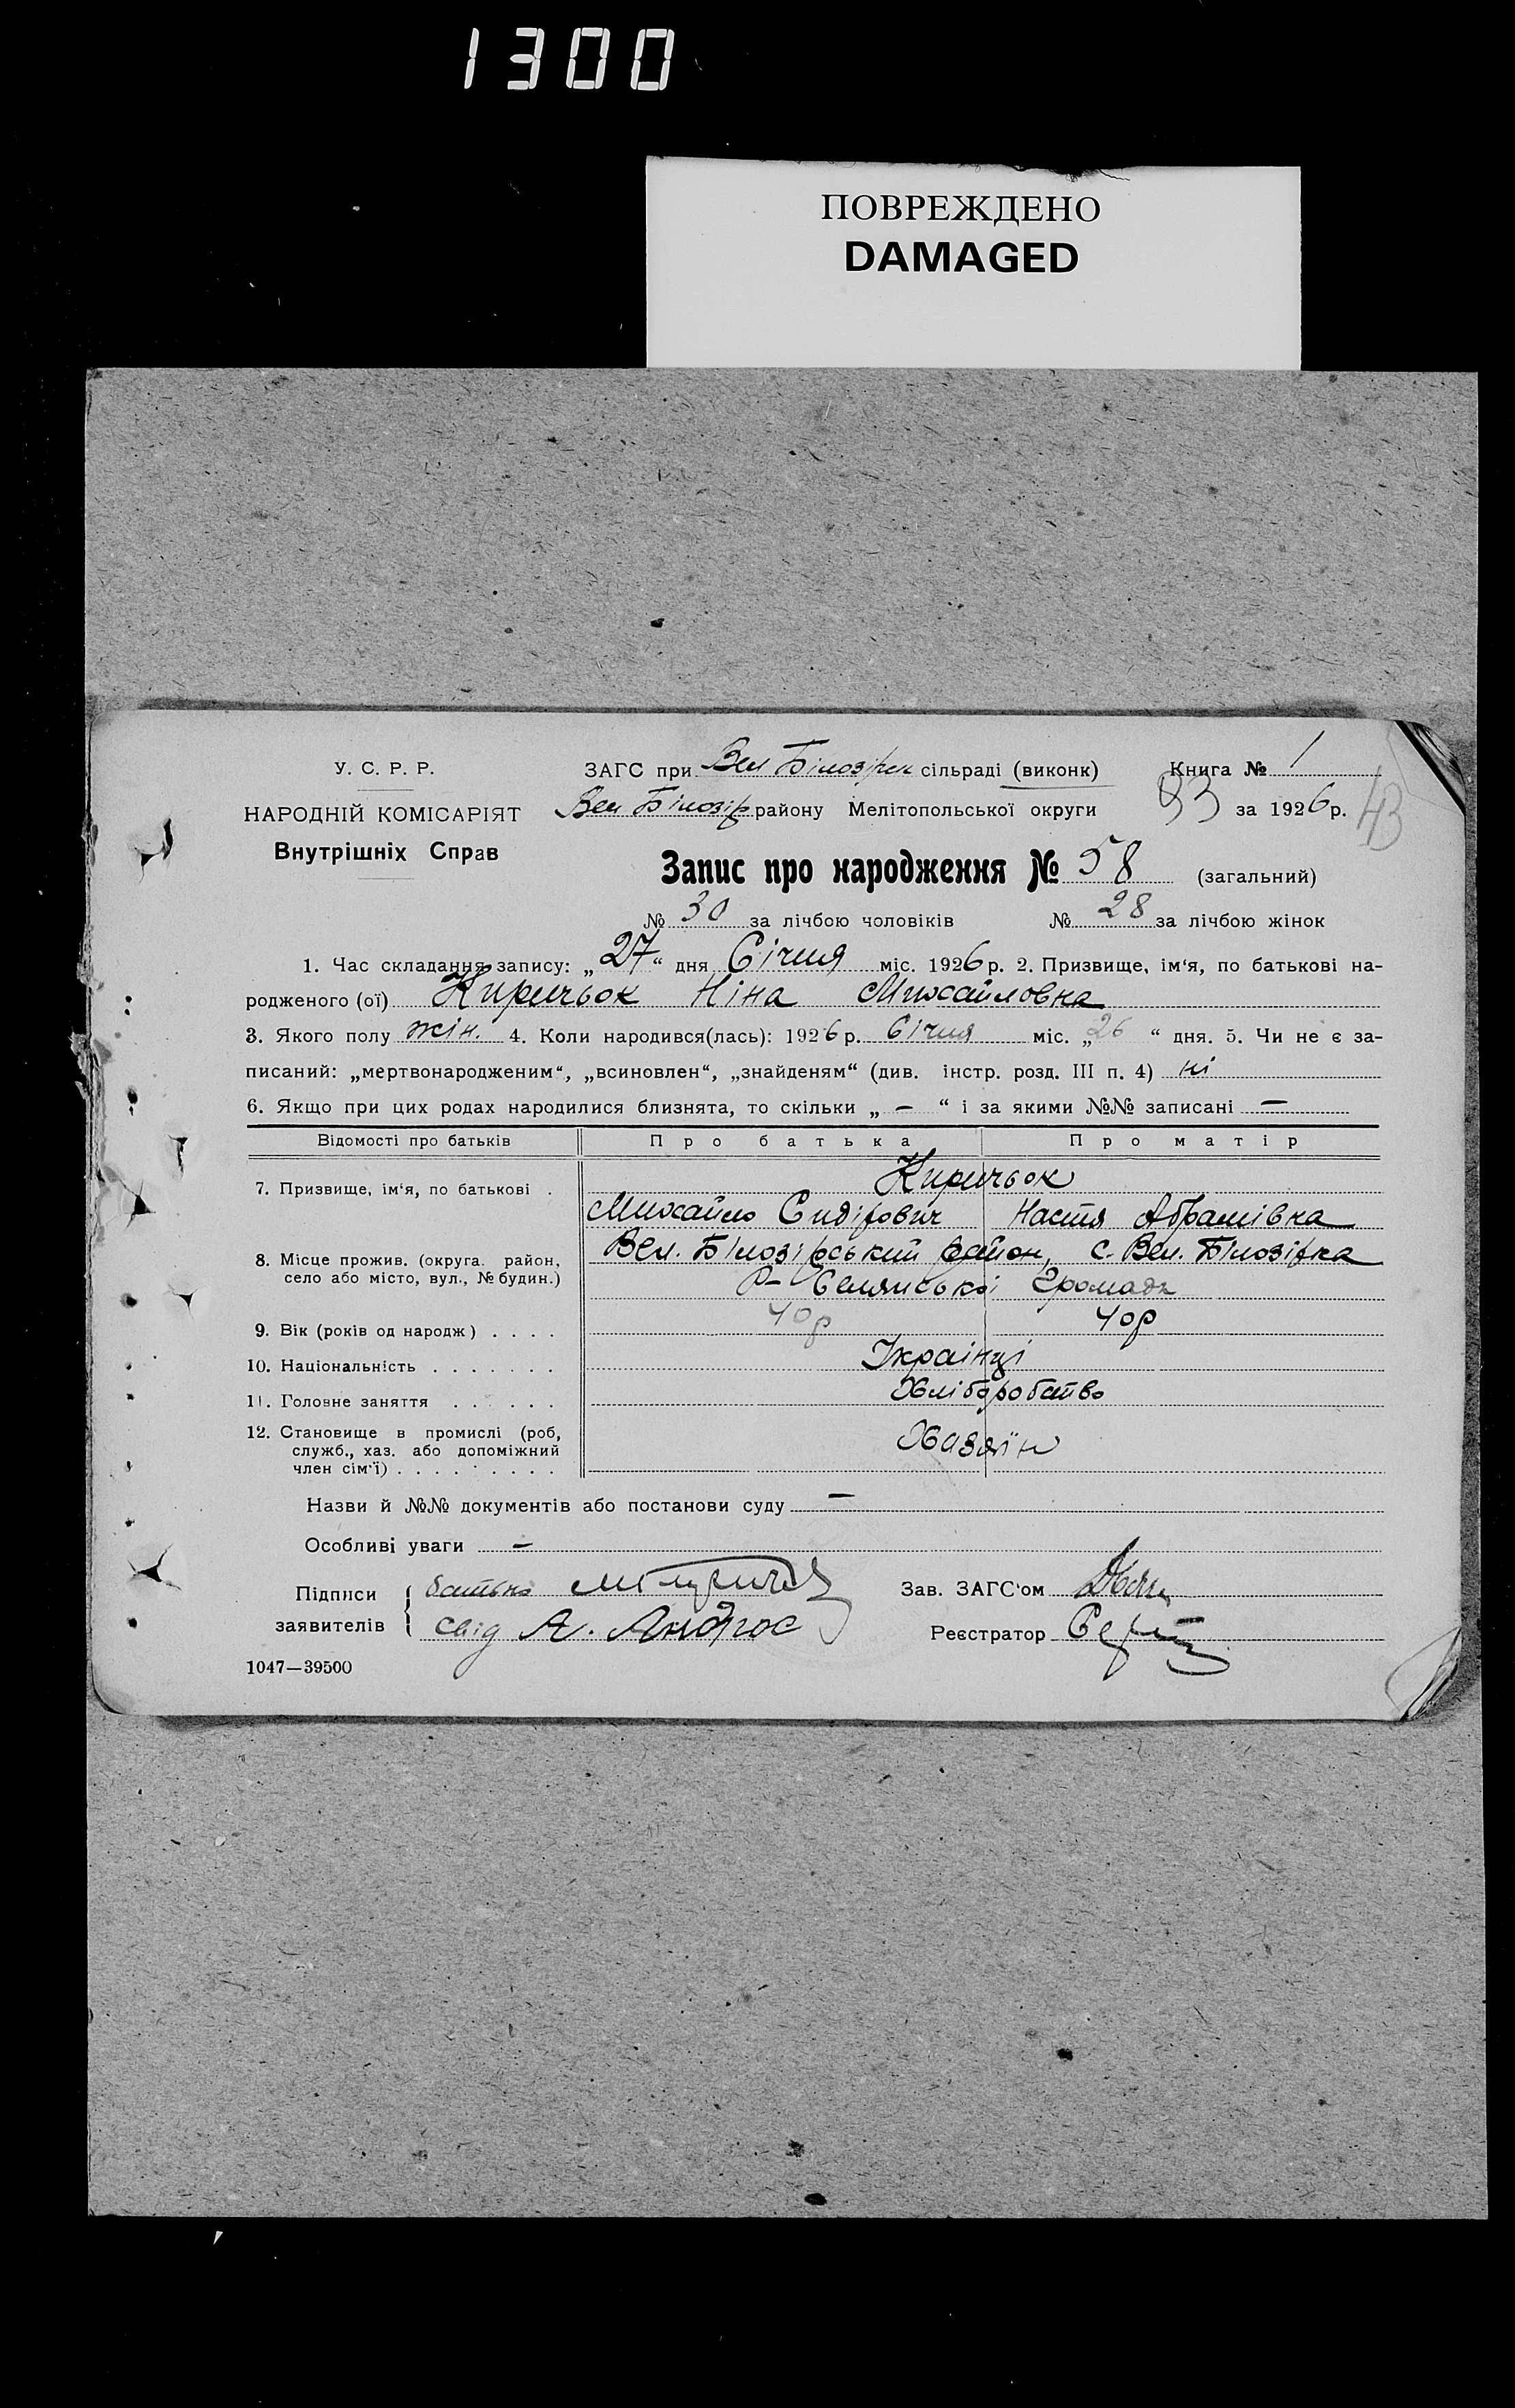 1300
ПОВРЕЖДЕНО
DAMAGED
У. С. Р. Р.
НАРОДНІЙ КОМІСАРІЯТ
Внутрішніх Справ
ЗАГС при Вел Білозірск сільраді (виконк)
Книга № 1
Вел Білозір району Мелітопольської округи
за 1926 р.
43
Запис про народження № 58 (загальний)
№ 30 за лічбою чоловіків № 28 за лічбою жінок
1. Час складання запису: „27“ дня Січня міс. 1926 р. 2. Призвище, ім‘я, по батькові на-
родженого (ої) Киричьок Ніна Михайловна
3. Якого полу жін. 4. Коли народився(лась): 1926 р. Січня міс. „26“ дня. 5. Чи не є за-
писаний: „мертвонародженим“, „всиновлен“, „знайденям“ (див. інстр. розд. III п. 4) ні
6. Якщо при цих родах народилися близнята, то скільки „ — “ і за якими №№ записані —
Відомості про батьків Про батька Про матір
7. Призвище, ім‘я, по батькові . Киричьок
Михайло Сидірович Настя Абрамівна
8. Місце прожив. (округа. район, село або місто, вул., № будин.) Вел. Білозірський район, с. Вел. Білозірка
Селянської Громади
9. Вік (років од народж) . . . . 40р 40р
10. Національність . . . . . . . Українці
11. Головне заняття . . . . . . Хліборобство
12. Становище в промислі (роб, служб., хаз. або допоміжний член сім‘ї) . . . . . . . . . Хазяїн
Назви й №№ документів або постанови суду —
Особливі уваги —
Підписи заявителів
батько
свід А. Андрос
Зав. ЗАГС‘ом
Реєстратор
1047—39500